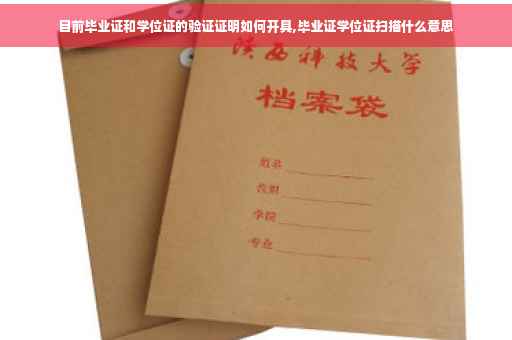 目前毕业证和学位证的验证证明如何开具,毕业证学位证扫描什么意思
陕西科技大学
档案袋
姓名
学院
专业